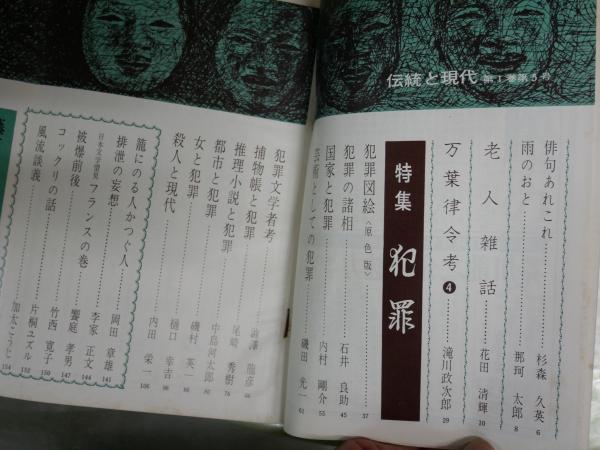 伝統と現代 第1巻第5号
俳句あれこれ……杉森 久英 6
雨のおと……那珂 太郎 8
老人雑話……花田 清輝 10
万葉律令考❹……滝川政次郎 29
特集 犯罪
犯罪図絵〈原色版〉……37
犯罪の諸相……石井 良助 45
国家と犯罪……内村 剛介 55
芸術としての犯罪……磯田 光一 61
犯罪文学者考……澁澤 龍彦
捕物帳と犯罪……尾崎 秀樹 76
推理小説と犯罪……中島河太郎
都市と犯罪……磯村 英一
女と犯罪……樋口 幸吉
殺人と現代……内田 栄一 106
籠にのる人かつぐ人……岡田 章雄 141
排泄の妄想……李家 正文 144
日本文学習見 フランスの巻……饗庭 孝男 147
被爆前後……竹西 寛子 150
コックリの話……片桐ユズル 152
風流談義……加太こうじ 154